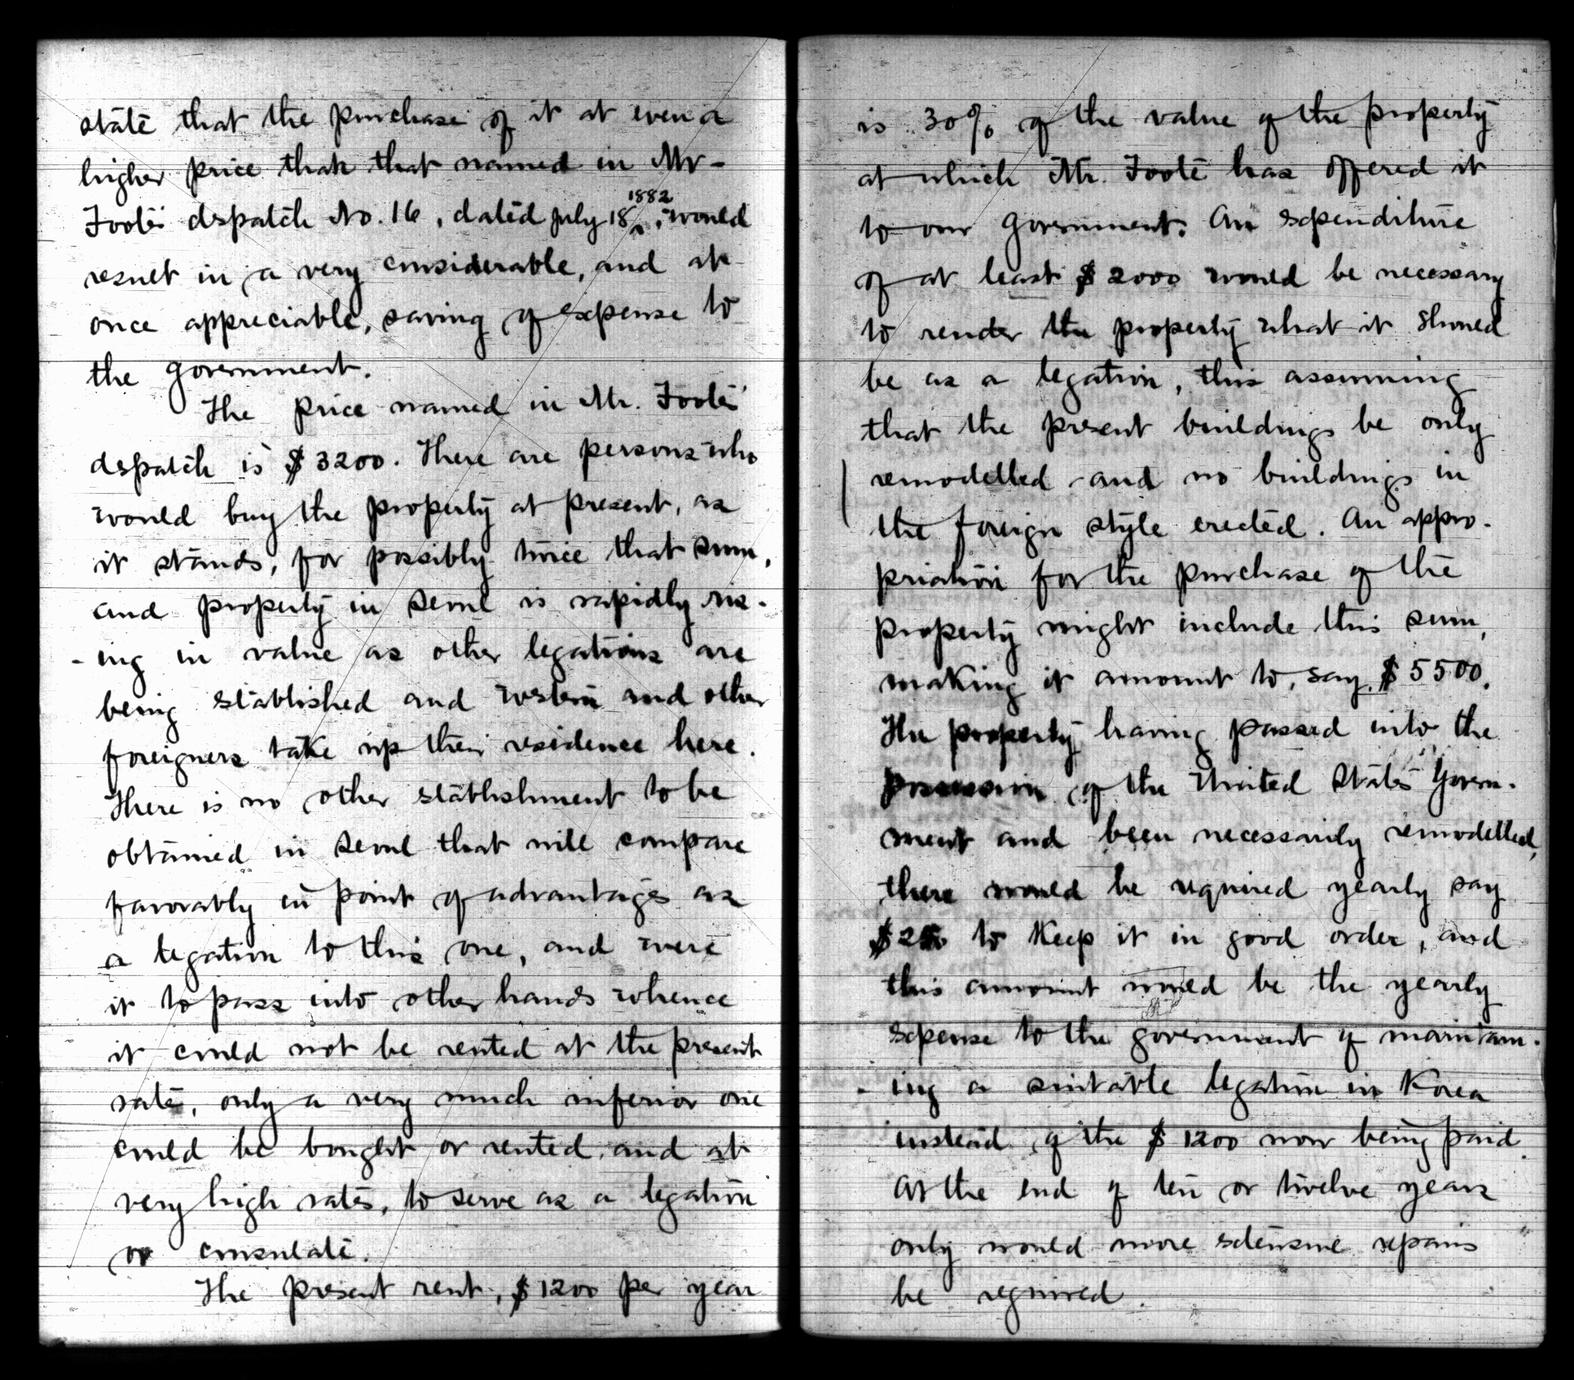 state that the purchase of it at even a
higher price than that named in Mr
Foote's dspatch No. 16, dated July 18, 1882, would
result in a very considerable, and at
once appreciable, saving of expense to
the government.
The price named in Mr. Foote's
dspatch is $3200. There are persons who
would buy the property at present, as
it stands, for possibly twice that sum,
and property in Seoul is rapidly ris-
-ing in value as other legations are
being established and western and other
foreigners take up their residence here.
There is no other establishment to be
obtained in Seoul that will compare
favorably in point of advantages as
a legation to this one, and were
it to pass into other hands whence
it could not be rented at the present
rate, only a very much inferior one
could be bought or rented, and at
very high rates, to serve as a legation
or consulate.
The present rent, $1200 per year
is 30% of the value of the property
at which Mr. Foote has offered it
to our government. An expenditure
of at least $2000 would be necessary
to render the property what it should
be as a legation, this assuming
that the present buildings be only
remodelled and no buildings in
the foreign style erected. An appro-
priation for the purchase of the
property might include this sum,
making it amount to, say, $5500.
The property having passed into the
possession of the United States Govern-
ment and been necessarily remodelled,
there would be required yearly say
to keep it in good order, and
this amount would be the yearly
expense to the government of maintain-
-ing a suitable legation in Korea
instead of the $1200 now being paid.
At the end of ten or twelve years
only would more extensive repairs
be required.